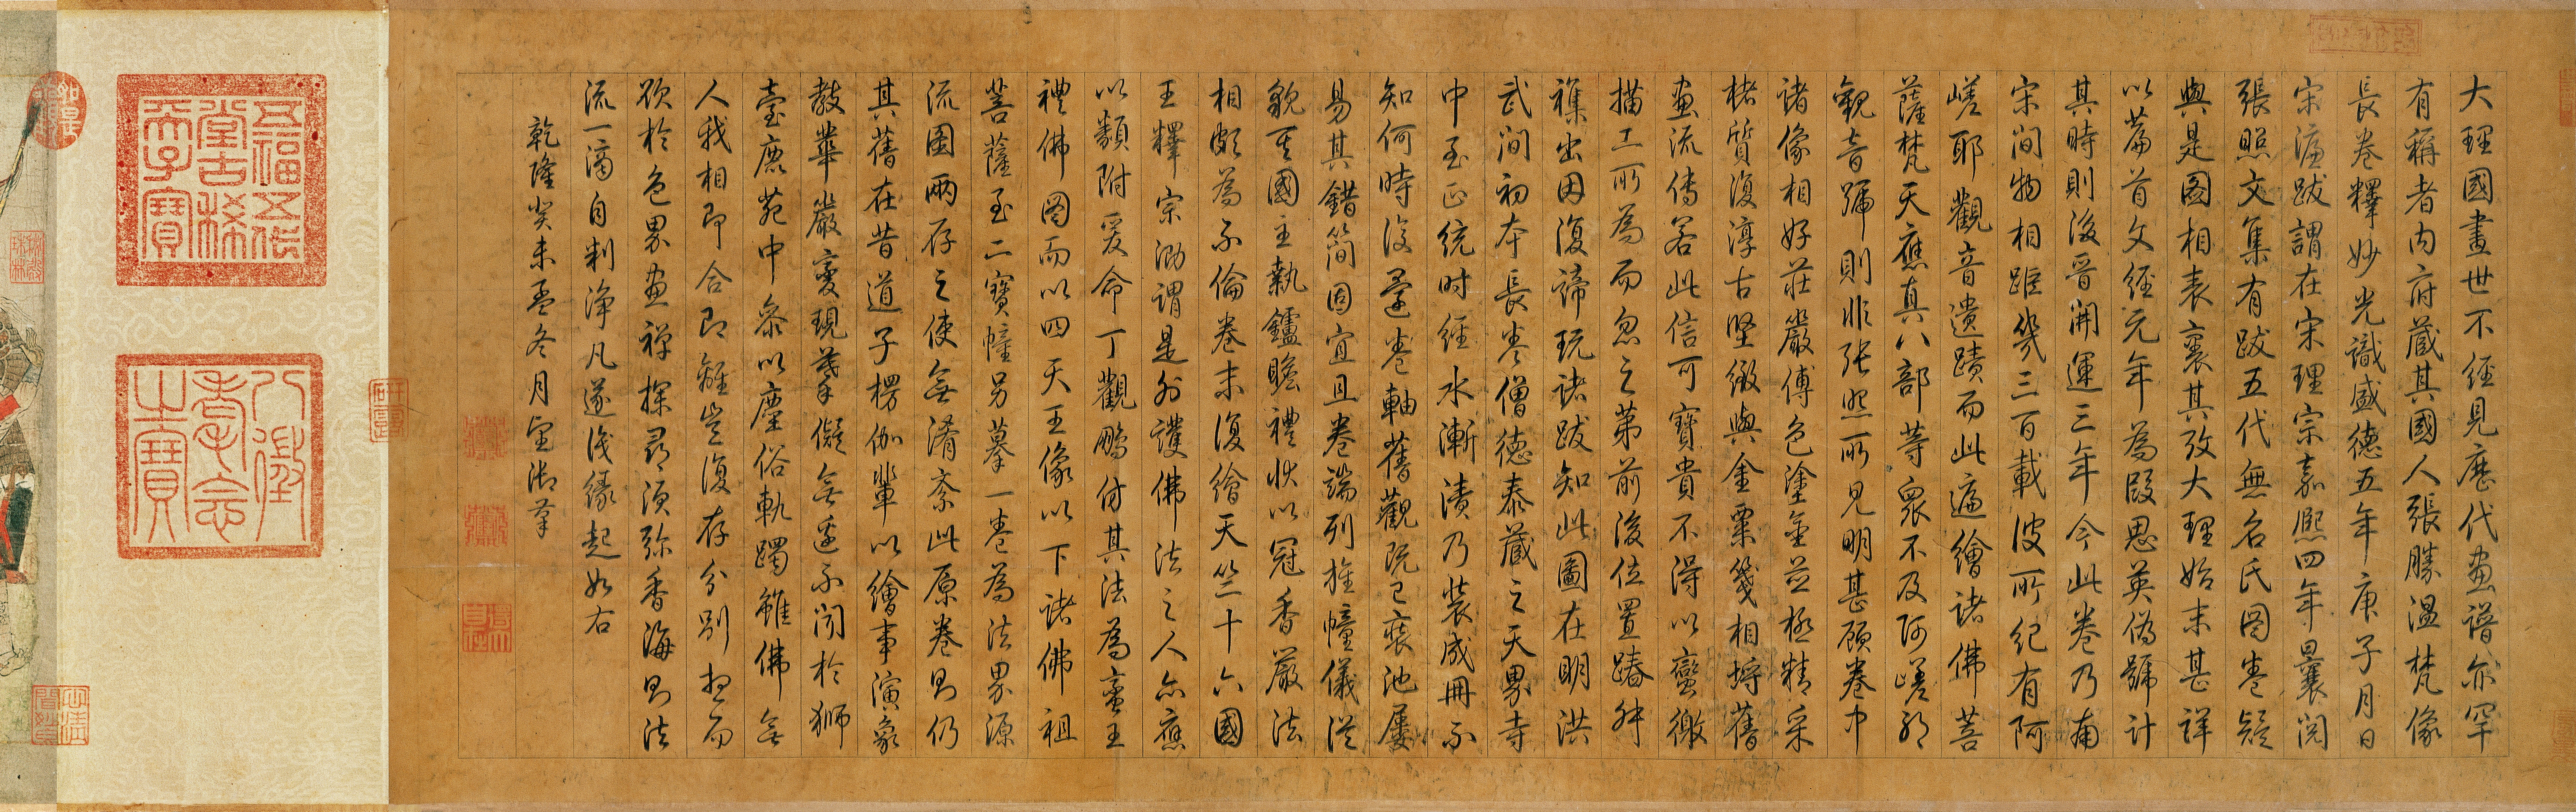 大理國畫世不經見歷代畫譜亦罕
有稱者內府藏其國人張勝溫梵像
長卷釋妙光識盛德五年庚子月日
宋濂跋謂在宋理宗嘉熙四年曩閱
張照文集有跋五代無名氏圖卷疑
與是圖相表裏其攷大理始末甚詳
以篇首文經元年為段思英偽號計
其時則後晉開運三年今此卷乃南
宋間物相距幾三百載彼所紀有阿
嵯耶觀音遺蹟而此遍繪諸佛菩
薩梵天應真八部等衆不及阿嵯耶
觀音號則非張照所見明甚顧卷中
諸像相好莊嚴傅色塗金並極精采
楮質復淳古堅緻與金粟箋相埒舊
畫流傳若此信可寶貴不得以蠻徼
描工所為而忽之第前後位置踳舛
襍出因復諦玩諸跋知此圖在明洪
武間初本長卷僧德泰藏之天界寺
中至正統時經水漸漬乃裝成冊不
知何時復還卷軸舊觀既已裝池屢
易其錯簡固宜且卷端列旌幢儀從
貌其國主執鑪瞻禮狀以冠香嚴法
相頗為不倫卷末復繪天竺十六國
王釋宗泐謂是外護佛法之人亦應
以類附爰命丁觀鵬仿其法為蠻王
禮佛圖而以四天王像以下諸佛祖
菩薩至二寶幢另摹一卷為法界源
流圖兩存之使無淆紊此原卷則仍
其舊在昔道子楞伽輩以繪事演象
教華嚴變現摹擬無遺不聞於獅
臺鹿苑中參以塵俗軌躅雖佛無
人我相即合即離豈復存分別想而
欲於色界畫禪探尋須彌香海則法
流一滴自判淨凡遂識緣起如右
乾隆癸未孟冬月望御筆
五福五代
堂古稀
天子寶
八徵
耄念
之寶